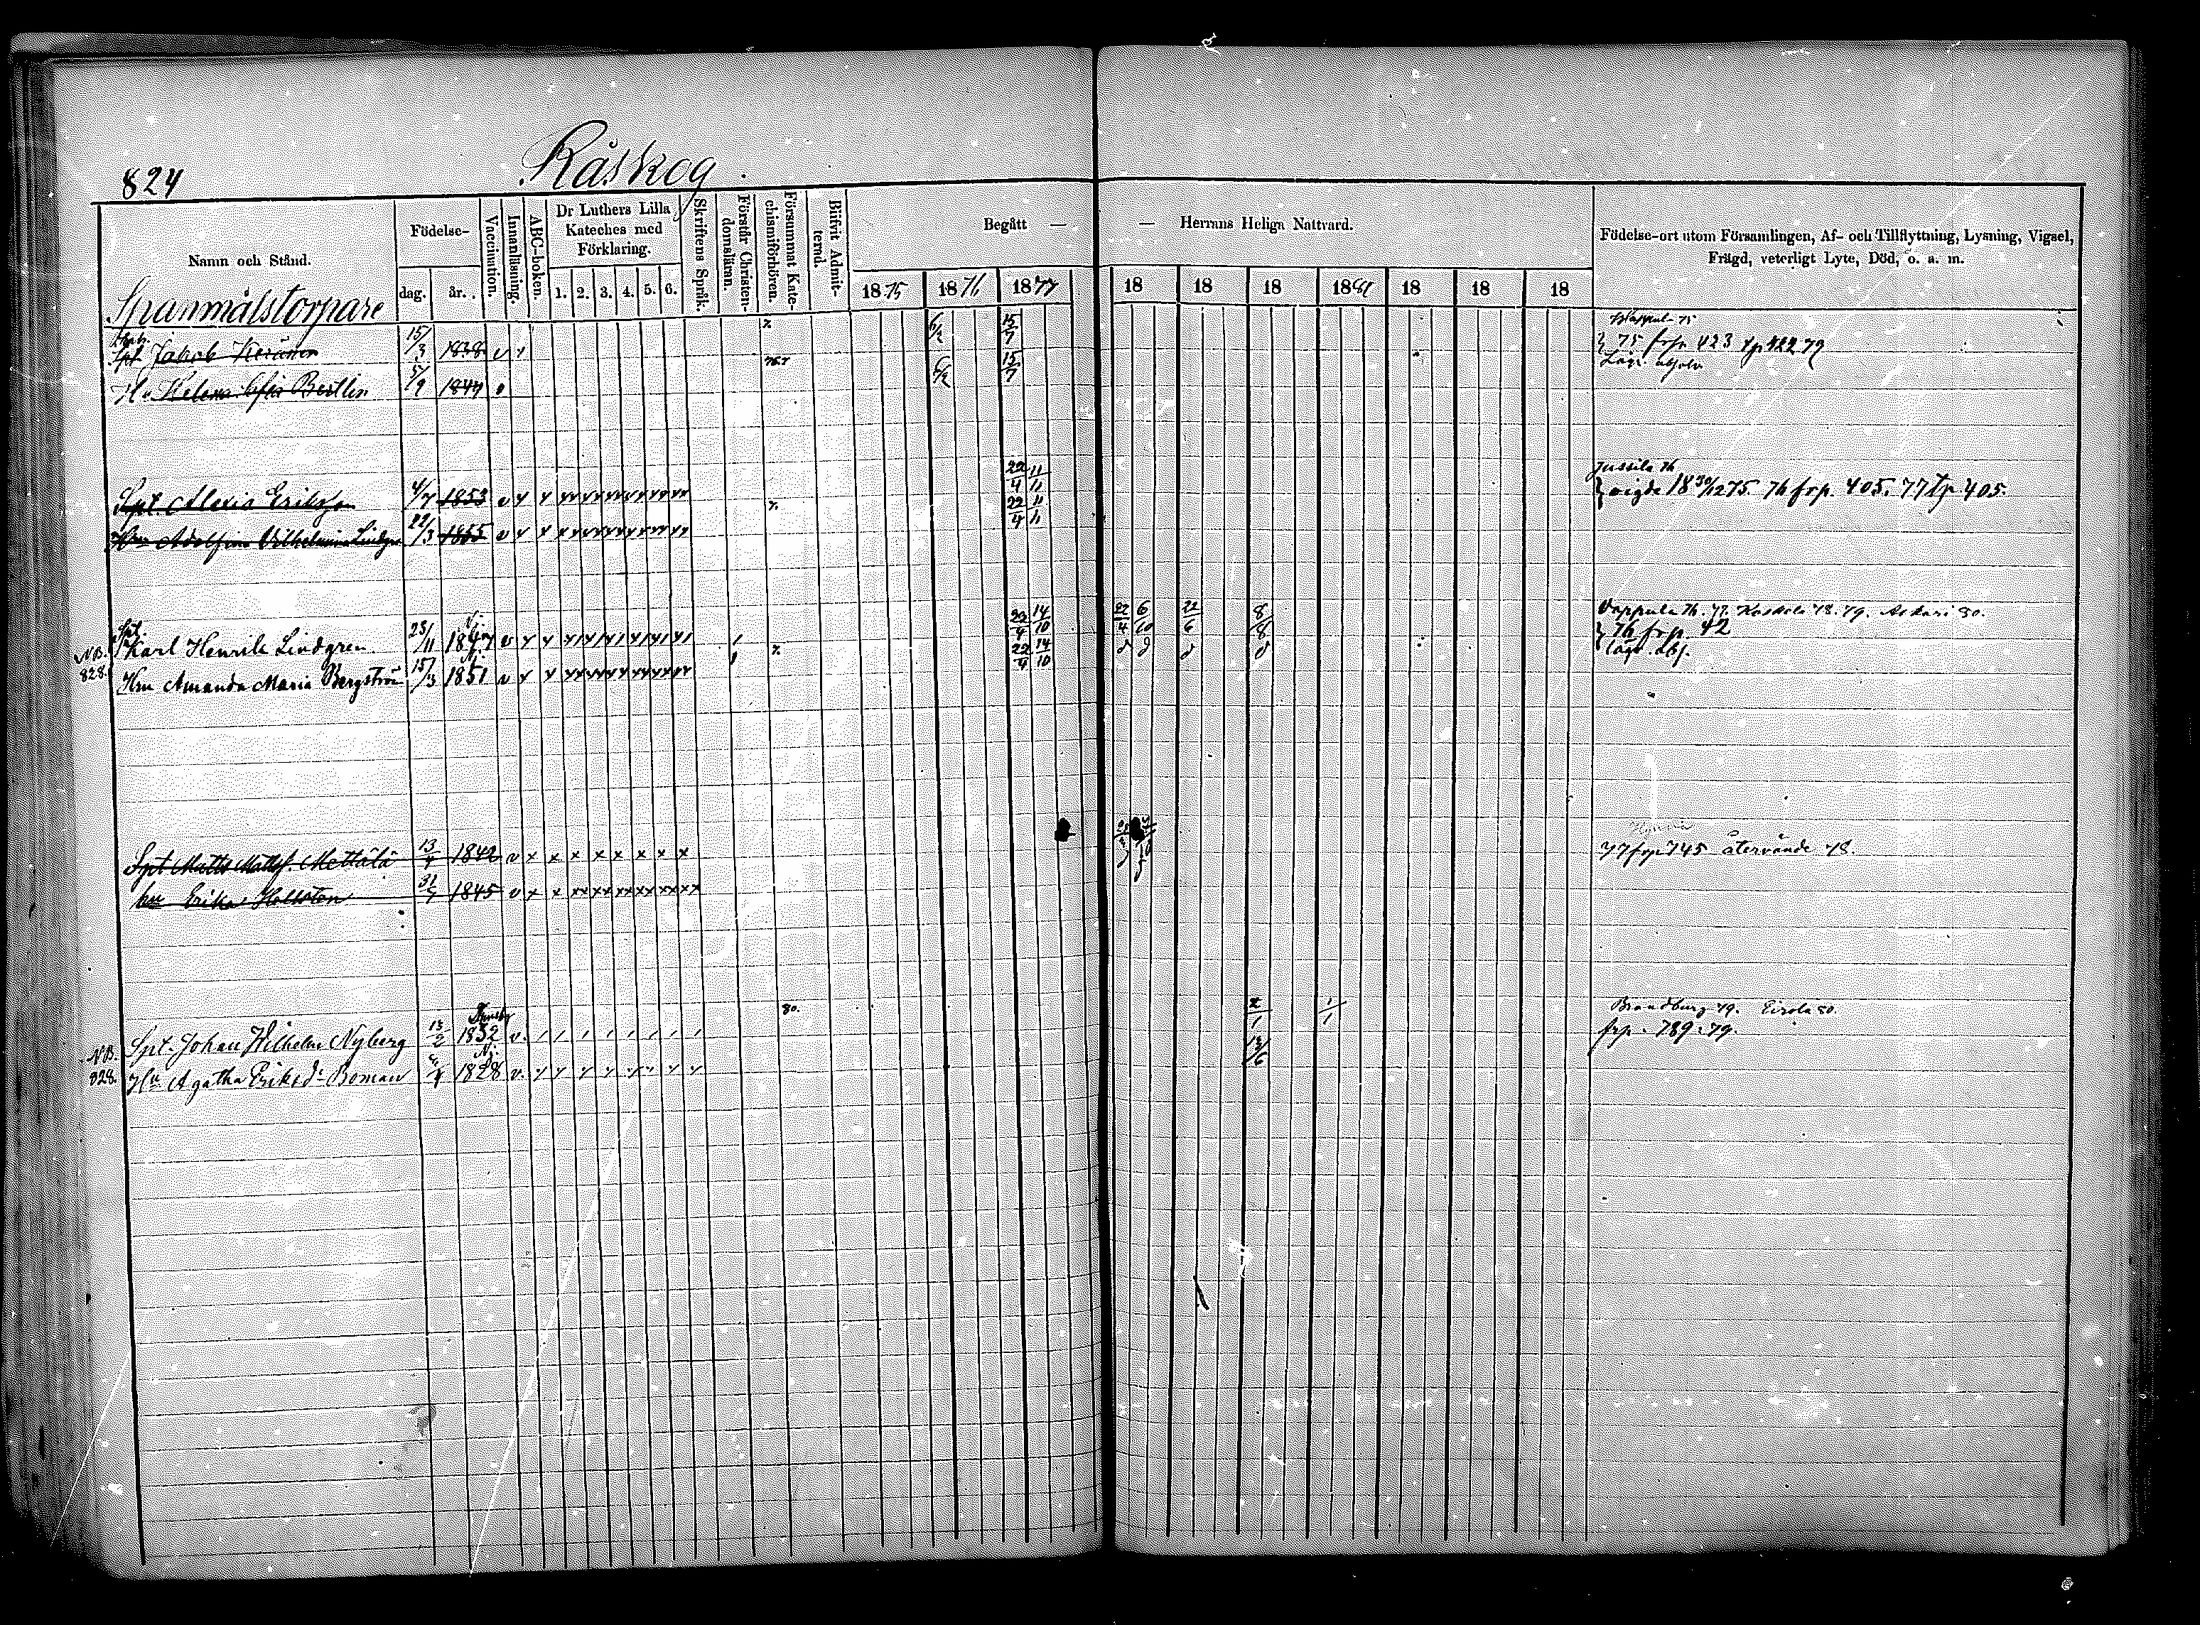 824
Råskog
Namn och Stånd.
Födelse-
dag.
år.
Vaccination.
Innanläsning.
ABC-boken.
Dr Luthers Lilla
Kateches med
Förklaring.
1. 2. 3. 4. 5. 6.
Skriftens Språk.
Förstår Christen-
domsläran.
Försummat Kate-
chismiförhören.
Blifvit Admit-
terad.
Begått — — Herrans Heliga Nattvard.
1875 1876 1877 18 18 18 1881 18 18 18
Födelse-ort utom Församlingen, Af- och Tillflyttning, Lysning, Vigsel,
Frägd, veterligt Lyte, Död, o. a. m.
Spanmålstorpare
Jakob 15/3 1838 v 6/2 15/7
75 frp. 423 tp 422 79
Hu Helena Berlin 5/9 v 6/2 15/7
Jussila 76
Spt. Alexis Eriksson 4/7 1853 v 22/4 11/11
vigde 18 30/12 75. 76 frp. 405. 77 tp 405.
Hu Adolfina Vilhelmina Lindgr 22/3 1855 v 22/4 11/11
Vappula 76. 77. Koskela 78. 79. Askari 80.
Spt. Karl Henrik Lindgren 23/11 1847 v 22/4 14/10 22/4 6/10 22/6 8/8
76 frp. 42
NB. 828. Hru Amanda Maria Bergström 15/3 1851 v 22/4 14/10
Spt Matts Matts. Mettälä 13/4 1842 v
77 frp 745 återvände 78.
hu Erika Hollsten 31/5 1845 v
Brandburg 79. Eirola 80.
Spt. Johan Wilhelm Nyberg 13/2 1832 v. 80. 2/1 1/1
frp. 789. 79.
NB. 828. Hu Agatha Eriksd:r Boman 1828 v. 13/6